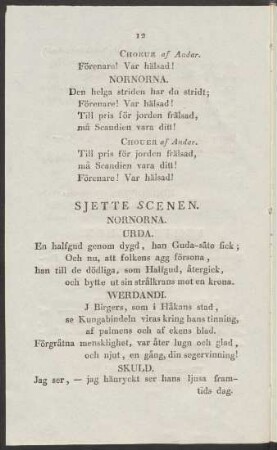 12
CHORUR af Andar.
Förenare! Var hälsad!
NORNORNA.
Den helga striden har du stridt;
Förenare! Var hälsad!
Till pris för jorden frälsad,
må Scandien vara ditt!
CHOUER af Andar.
Till pris för jorden frälsad,
må Scandien vara ditt!
Förenare! Var hälsad!
SJETTE SCENEN.
NORNORNA.
URDA.
En halfgud genom dygd, han Guda-säte fick;
Och nu, att folkens agg försona,
han till de dödliga, som Halfgud, återgick,
och bytte ut sin strålkrans mot en krona.
WERDANDI.
J Birgers, som i Håkans stad,
se Kungabindeln viras kring hans tinning,
af palmens och af ekens blad.
Förgråtna mensklighet, var åter lugn och glad,
och njut, en gång, din segervinning!
SKULD.
Jag ser, — jag hänryckt ser hans ljusa fram-
tids dag.